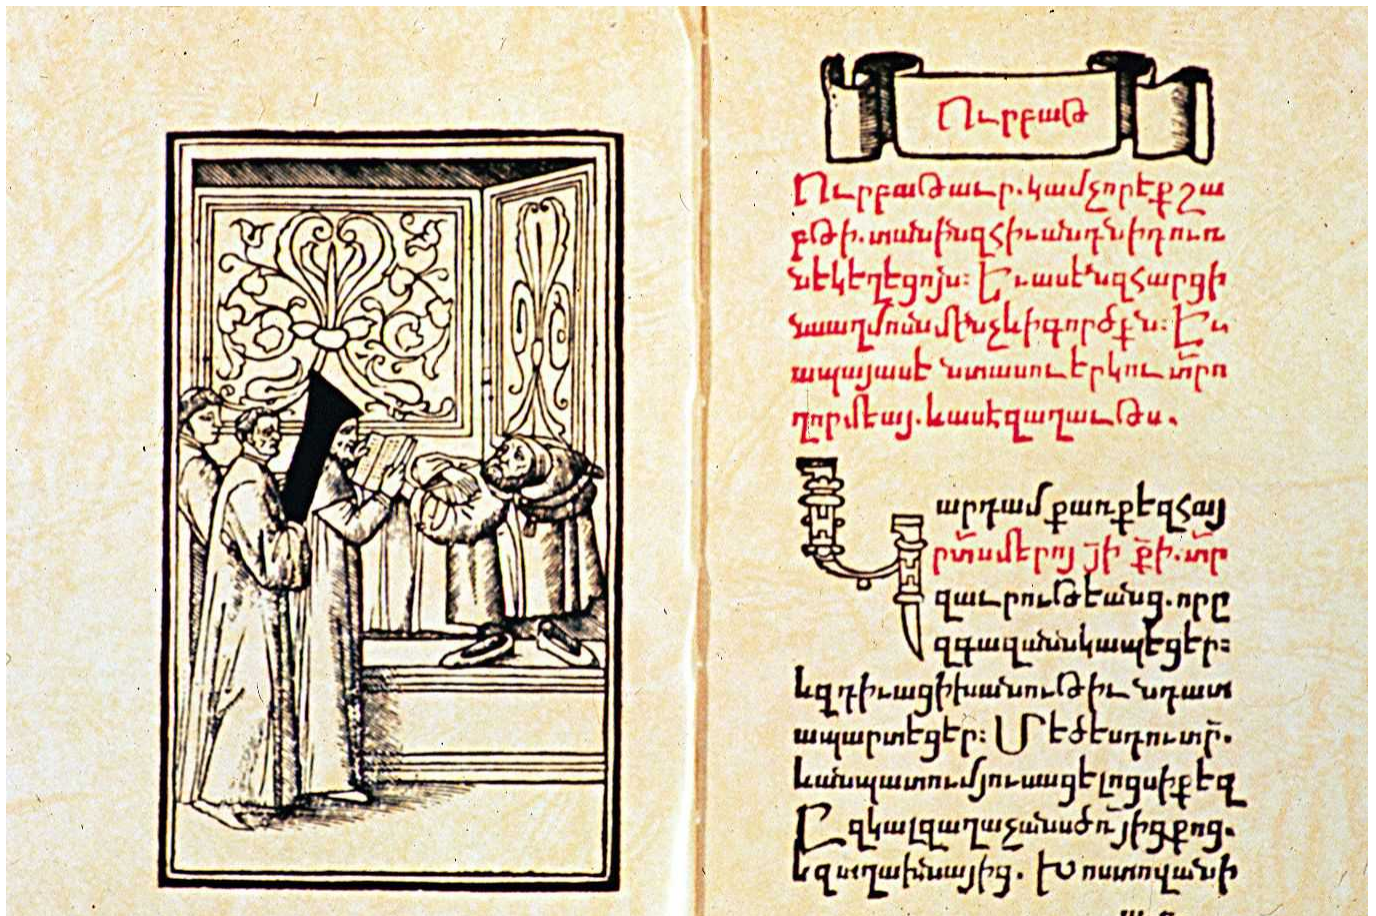 Ուրբաթ
Ուրբաթաւր. կամ չորէքշա
բթի. տանին զհիւանդն ի դուռ
ն եկեղեցոյն։ Եւ ասեն զհարցի
սաղմոսն մինչև ի գործքն։ Եւ
ապա յասէ երկու տր̃ ո
ղորմեայ. և ասէ զաղաւթս.
Յարդամ քառ քեզ հայ
ր տն̃ մերոյ յի̃ քի̃. տր̃
զաւրութեանց. որ ը
զգազանսն կապեցեր։
և զդիւացի խանութիւնդատ
ապարտեցեր։ Մեծ ես դու տր̃.
և անպատում յուսացելոցս ի քեզ
Ընկալ զաղաչանս ծռ̃յից քոց.
և Խոստովանի